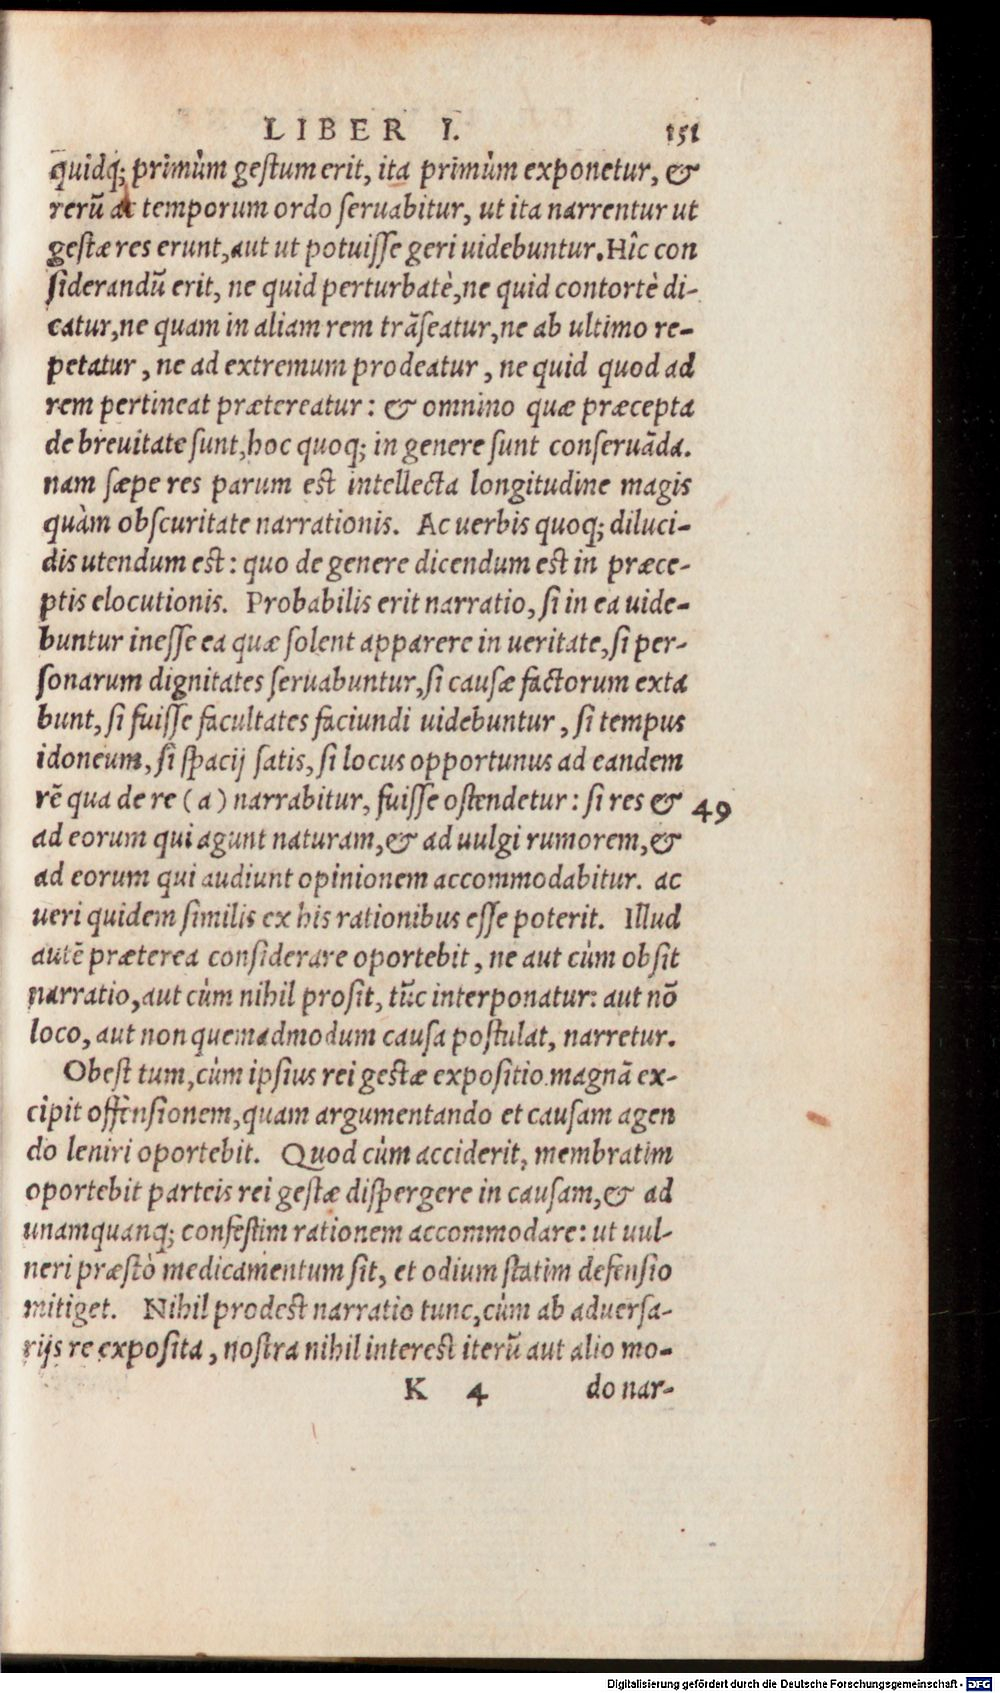 LIBER I. 151
quidq; primùm gestum erit, ita primùm exponetur, &
rerũ ac temporum ordo seruabitur, ut ita narrentur ut
gestæ res erunt, aut ut potuisse geri uidebuntur. Hîc con
siderandũ erit, ne quid perturbatè, ne quid contortè di-
catur, ne quam in aliam rem trãseatur, ne ab ultimo re-
petatur, ne ad extremum prodeatur, ne quid quod ad
rem pertineat prætereatur: & omnino quæ præcepta
de breuitate sunt, hoc quoq; in genere sunt conseruãda.
nam sæpe res parum est intellecta longitudine magis
quàm obscuritate narrationis. Ac uerbis quoq; diluci-
dis utendum est: quo de genere dicendum est in præce-
ptis elocutionis. Probabilis erit narratio, si in ea uide-
buntur inesse ea quæ solent apparere in ueritate, si per-
sonarum dignitates seruabuntur, si causæ factorum exta
bunt, si fuisse facultates faciundi uidebuntur, si tempus
idoneum, si spacij satis, si locus opportunus ad eandem
rẽ qua de re (a) narrabitur, fuisse ostendetur: si res & 49
ad eorum qui agunt naturam, & ad uulgi rumorem, &
ad eorum qui audiunt opinionem accommodabitur. ac
ueri quidem similis ex his rationibus esse poterit. Illud
autẽ præterea considerare oportebit, ne aut cùm obsit
narratio, aut cùm nihil prosit, tũc interponatur: aut nõ
loco, aut non quemadmodum causa postulat, narretur.
Obest tum, cùm ipsius rei gestæ expositio magnã ex-
cipit offensionem, quam argumentando et causam agen
do leniri oportebit. Quod cùm acciderit, membratim
oportebit parteis rei gestæ dispergere in causam, & ad
unamquanq; confestim rationem accommodare: ut uul-
neri præstò medicamentum sit, et odium statim defensio
mitiget. Nihil prodest narratio tunc, cùm ab aduersa-
rijs re exposita, nostra nihil interest iterũ aut alio mo-
K 4 do nar-
Digitalisierung gefördert durch die Deutsche Forschungsgemeinschaft - DFG